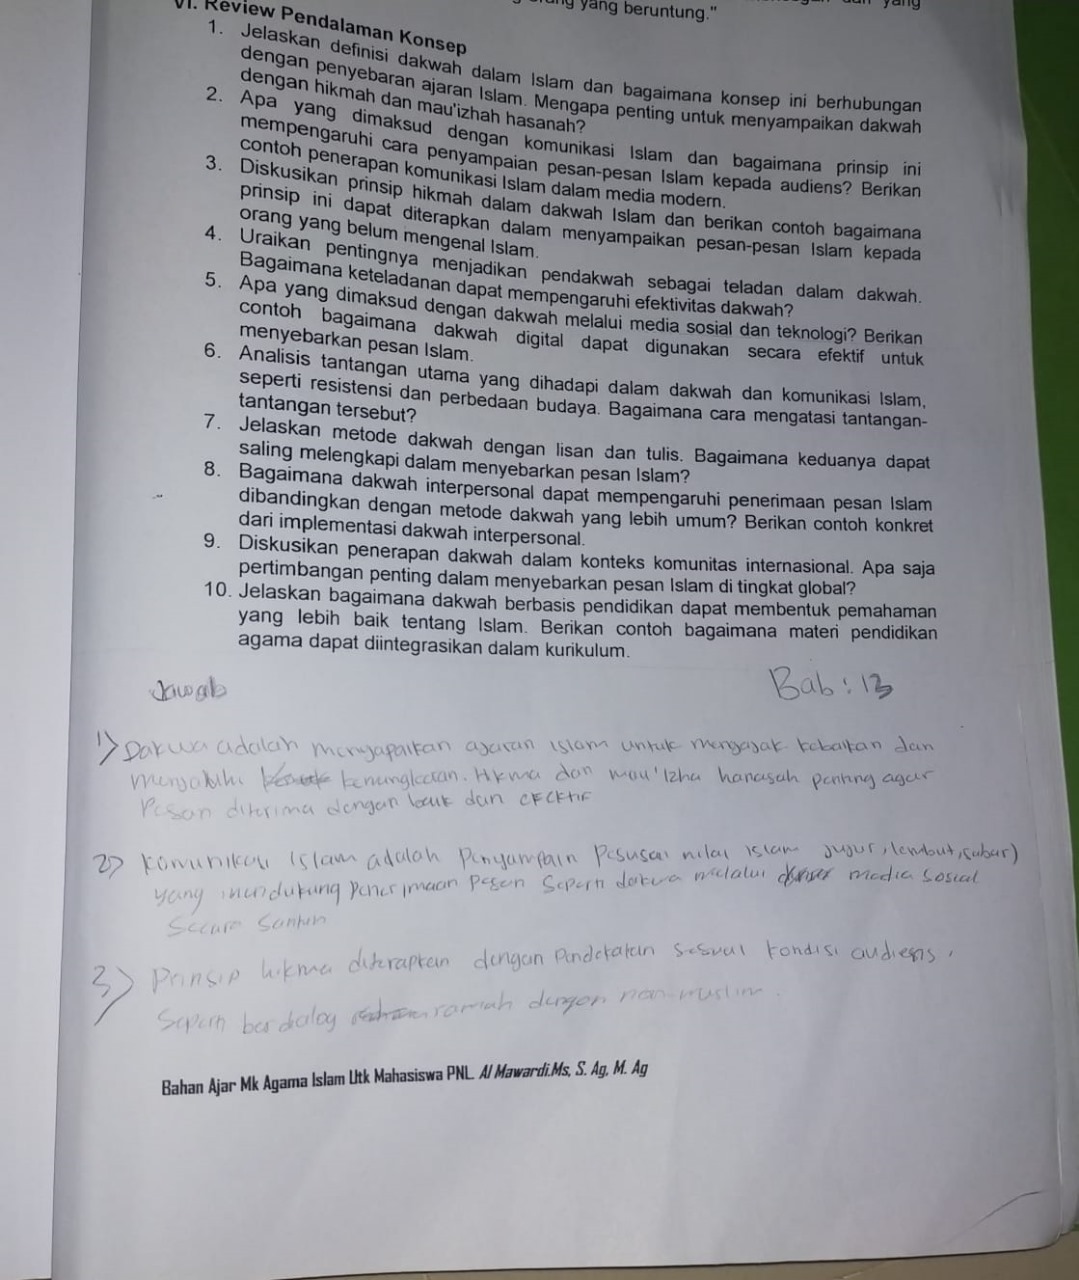 yang beruntung."
VI. Review Pendalaman Konsep
1. Jelaskan definisi dakwah dalam Islam dan bagaimana konsep ini berhubungan
dengan penyebaran ajaran Islam. Mengapa penting untuk menyampaikan dakwah
dengan hikmah dan mau'izhah hasanah?
2. Apa yang dimaksud dengan komunikasi Islam dan bagaimana prinsip ini
mempengaruhi cara penyampaian pesan-pesan Islam kepada audiens? Berikan
contoh penerapan komunikasi Islam dalam media modern.
3. Diskusikan prinsip hikmah dalam dakwah Islam dan berikan contoh bagaimana
prinsip ini dapat diterapkan dalam menyampaikan pesan-pesan Islam kepada
orang yang belum mengenal Islam.
4. Uraikan pentingnya menjadikan pendakwah sebagai teladan dalam dakwah.
Bagaimana keteladanan dapat mempengaruhi efektivitas dakwah?
5. Apa yang dimaksud dengan dakwah melalui media sosial dan teknologi? Berikan
contoh bagaimana dakwah digital dapat digunakan secara efektif untuk
menyebarkan pesan Islam.
6. Analisis tantangan utama yang dihadapi dalam dakwah dan komunikasi Islam,
seperti resistensi dan perbedaan budaya. Bagaimana cara mengatasi tantangan-
tantangan tersebut?
7. Jelaskan metode dakwah dengan lisan dan tulis. Bagaimana keduanya dapat
saling melengkapi dalam menyebarkan pesan Islam?
8. Bagaimana dakwah interpersonal dapat mempengaruhi penerimaan pesan Islam
dibandingkan dengan metode dakwah yang lebih umum? Berikan contoh konkret
dari implementasi dakwah interpersonal.
9. Diskusikan penerapan dakwah dalam konteks komunitas internasional. Apa saja
pertimbangan penting dalam menyebarkan pesan Islam di tingkat global?
10. Jelaskan bagaimana dakwah berbasis pendidikan dapat membentuk pemahaman
yang lebih baik tentang Islam. Berikan contoh bagaimana materi pendidikan
agama dapat diintegrasikan dalam kurikulum.
Jawab Bab : 13
1) Dakwa adalah menyapaikan ajaran islam untuk mengajak kebaikan dan
menjauhi. Hkma dan mau'izha hanasah penting agar
Pesan diterima dengan baik dan efektif
2) komunikasi Islam adalah Penyampain Pesusai nilai islam jujur, lembut, sabar)
yang mendukung Penerimaan Pesan Seperti dakwa melalui media sosial
Secara Santun
3) Prinsip hikma diterapkan dengan Pendekatan sesuai kondisi audiens,
Seperti berdialog ramah dengan non-muslim.
Bahan Ajar Mk Agama Islam Utk Mahasiswa PNL. Al Mawardi.Ms, S. Ag, M. Ag